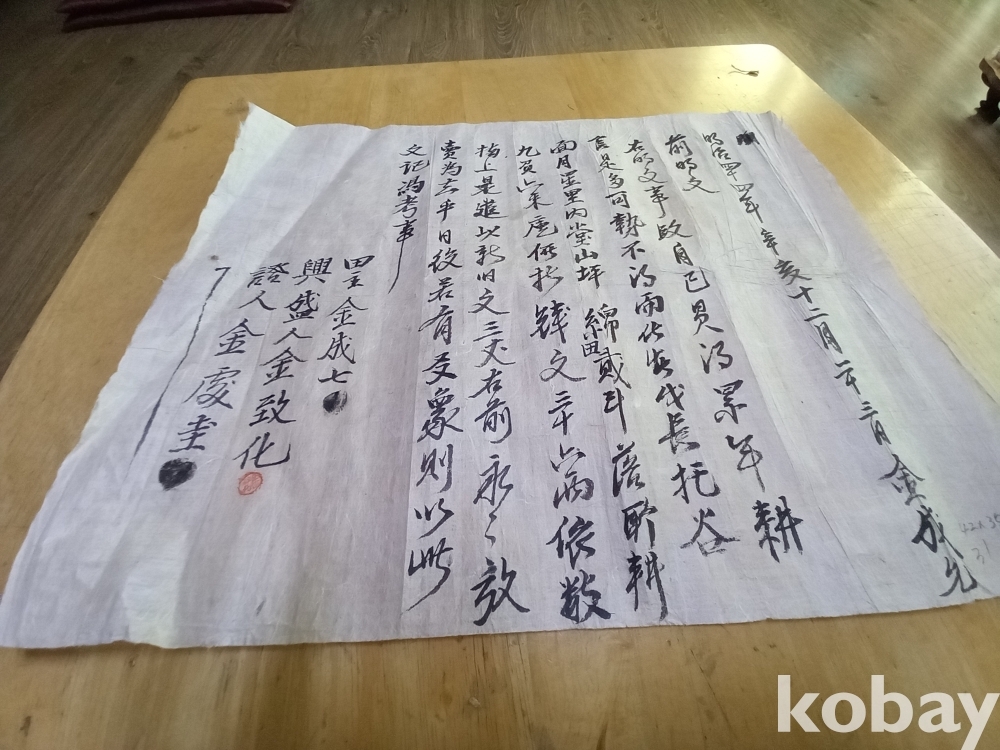 明治四四年辛亥十二月二十三日 金成允
前明文
右明文事段自己買得累年耕
是多可勢不得而 長托谷
面月里內堂山坪 綿田貳斗落所耕
九負六束廤價折錢文三十六兩依數
捧上是遣以新旧文三丈右前永〻放
賣為去乎日後若有爻象則以此
文記馮考事
田主 金成七
興盛人金致化
證人 金處圭
kobay